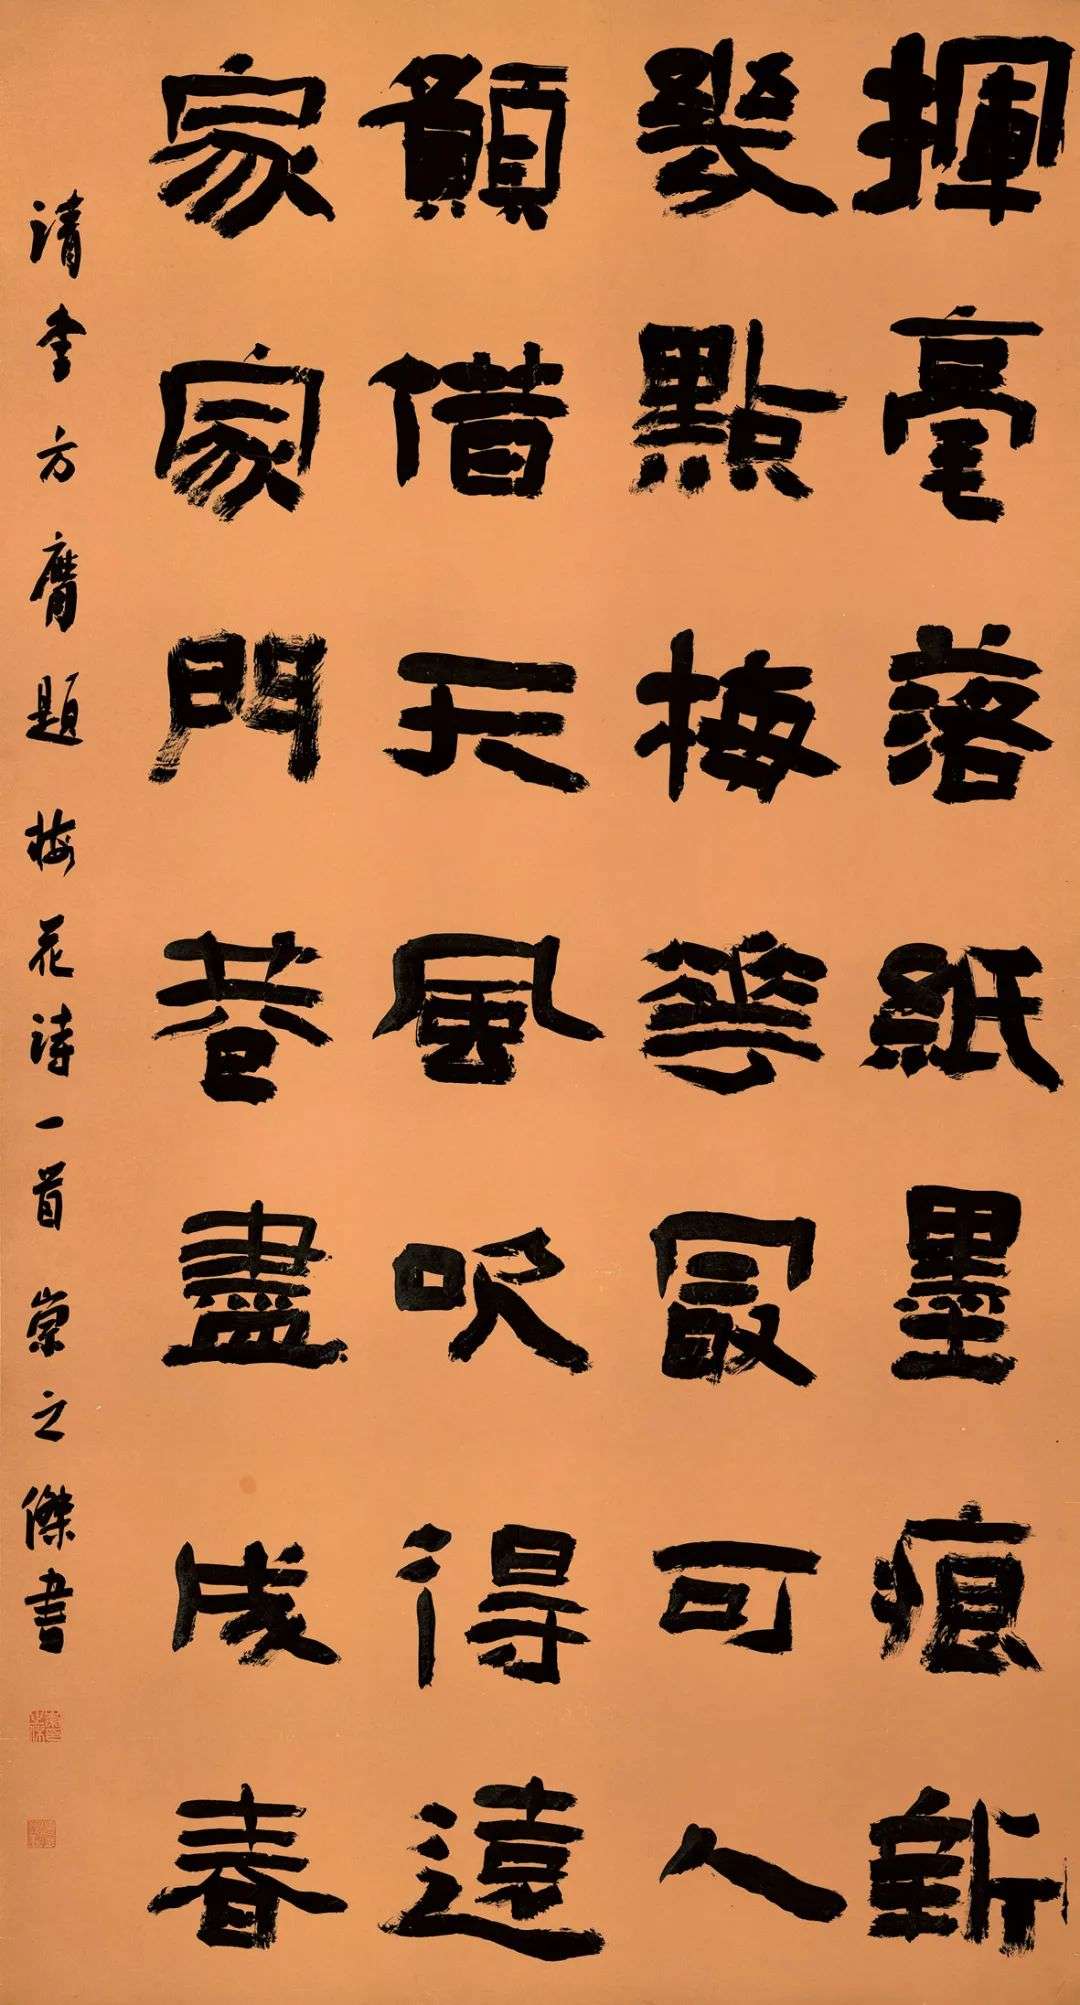 揮毫落紙墨痕新
幾點梅華最可人
願借天風吹得遠
家家門巷盡成春
清李方膺題梅花詩一首 崇之傑書